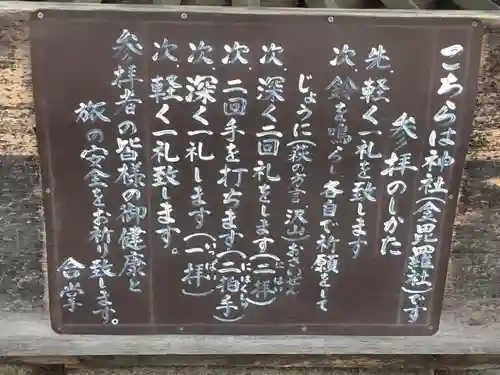 こちらは神社(金毘羅社)です
参拝のしかた
先、軽く一礼を致します
次、鈴を鳴らし各自で祈願をして
じょうに(萩の方言 沢山)
次、深く二回礼をします(二拝)にはい
次、二回手を打ちます(二拍手)
次、深く一礼します(一拝)
次、軽く一礼致します。
参拝者の皆様の御健康と
旅の安全をお祈り致します。
合掌